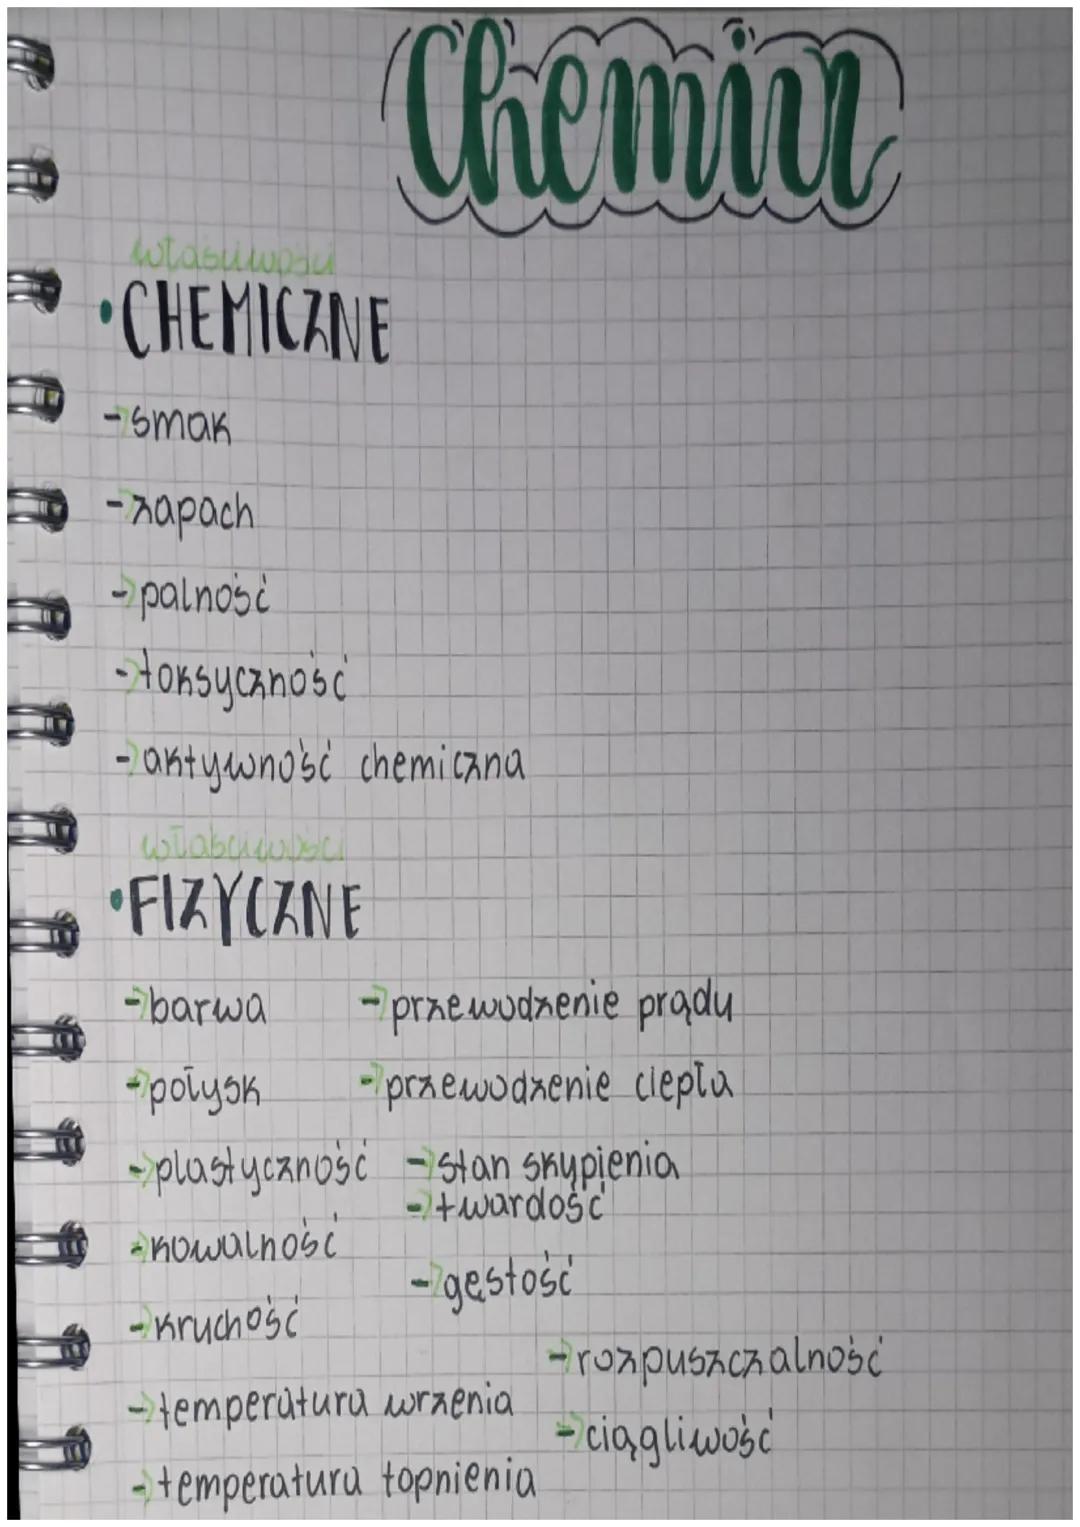 Chemia
właściwości
• CHEMICZNE
→ smak
→ zapach
→ palność
→ toksyczność
→ aktywność chemiczna
właściwości
• FIZYCZNE
→ barwa → przewodzenie prądu
→ połysk → przewodzenie ciepła
→ plastyczność → stan skupienia
→ twardość
→ kowalność
→ gęstość
→ kruchość
→ rozpuszczalność
→ temperatura wrzenia
→ ciągliwość
→ temperatura topnienia